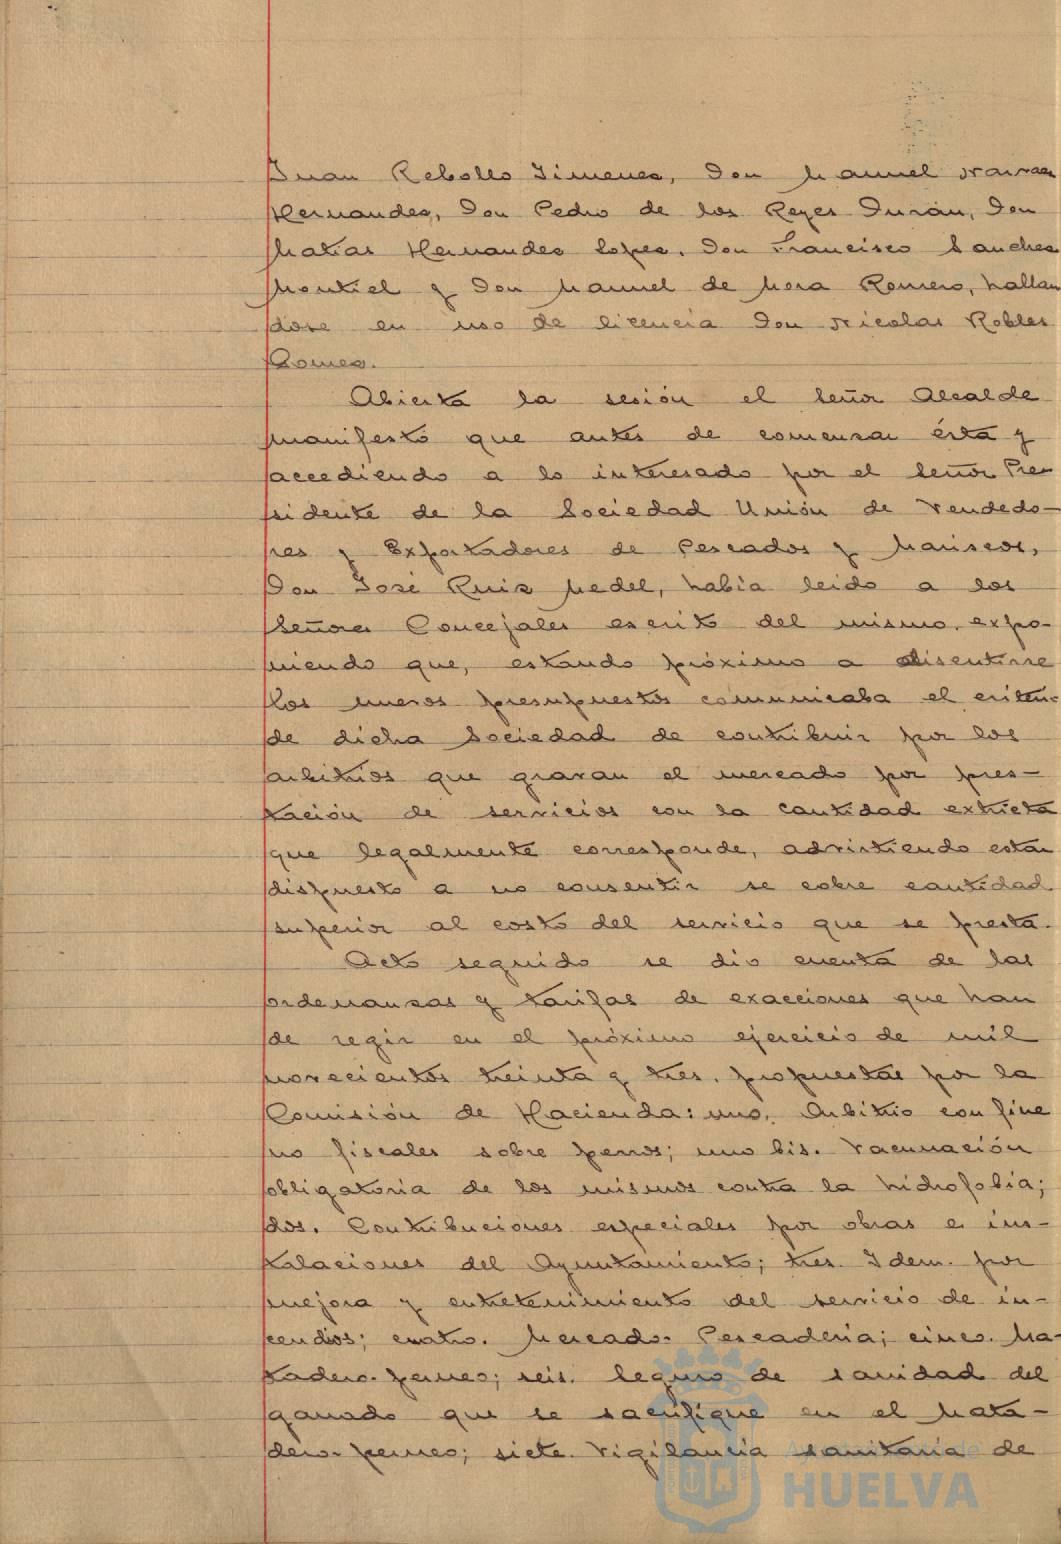 Juan Rebollo Jimenez, Don Manuel Narvaez
Hernandez, Don Pedro de los Reyes Durán, Don
Matias Hernandez Lopez, Don Francisco Sanchez
Montiel y Don Manuel de Mora Romero, hallan
dose en uso de licencia Don Nicolas Robles
Gomez.
Abierta la sesión el Señor Alcalde
manifestó que antes de comenzar ésta y
accediendo a lo interesado por el Señor Pre-
sidente de la Sociedad Unión de Vendedo-
res y Exportadores de Pescados y Mariscos,
Don José Ruiz Medel, había leido a los
Señores Concejales escrito del mismo, expo-
niendo que, estando próximo a discutirse
los nuevos presupuestos comunicaba el criterio
de dicha Sociedad de contribuir por los
arbitrios que gravan el mercado por pres-
tación de servicios con la cantidad extricta
que legalmente corresponde, advirtiendo estar
dispuesto a no consentir se cobre cantidad
superior al costo del servicio que se presta.
Acto seguido se dio cuenta de las
ordenanzas y tarifas de exacciones que han
de regir en el próximo ejercicio de mil
novecientos treinta y tres, propuestas por la
Comisión de Hacienda: uno. Arbitrio con fines
no fiscales sobre perros; uno bis. Vacunación
obligatoria de los mismos contra la hidrofobia;
dos. Contribuciones especiales por obras e ins-
talaciones del Ayuntamiento; tres. Idem. por
mejora y entretenimiento del servicio de in-
cendios; cuatro. Mercado-Pescaderia; cinco. Ma-
tadero-perneo; seis. Seguro de sanidad del
ganado que se sacrifique en el Mata-
dero-perneo; siete. Vigilancia sanitaria de
Ayuntamiento de
HUELVA